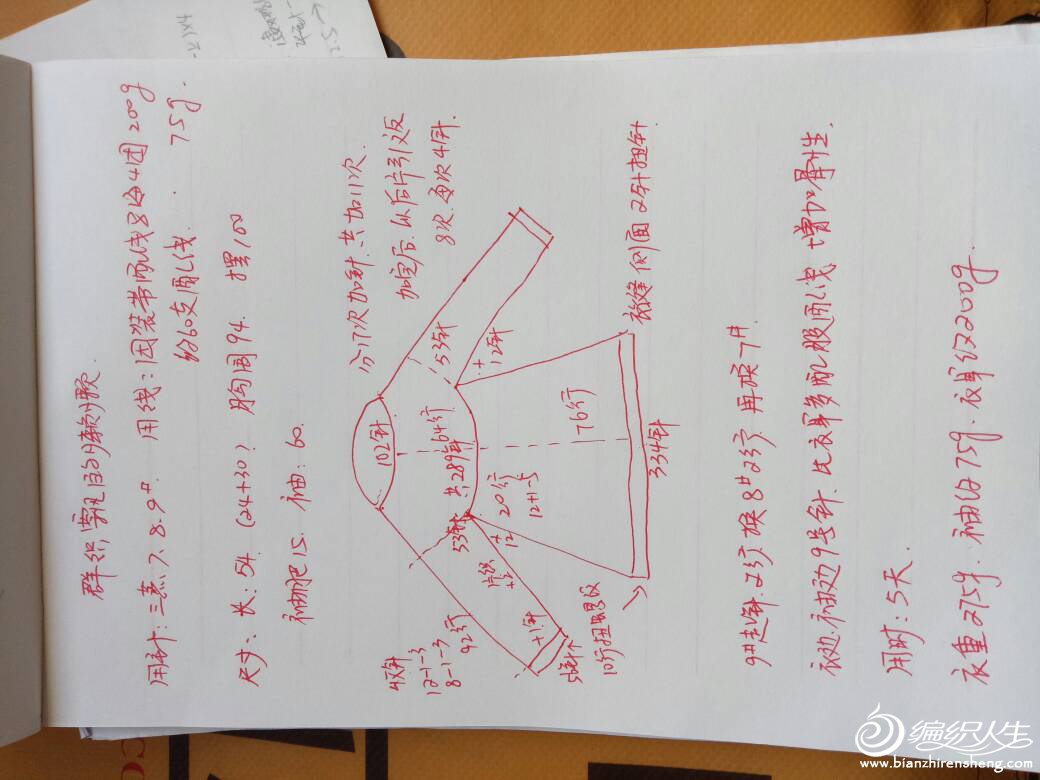 群织
用针：三燕7.8.9#  用线：团装带配线 4团200g
约60支配线.  75g.
尺寸：长：54 (24+30)  胸围94.  摆100
袖肥15. 袖：60.
分11次加针.共加11次.
加完后.从后片引返
8次.每次4针.
102针
64行
共289针
53针
+12针
53针
+12
20行
12+1-5
76行
334针
裙缝侧面2针扭针
+1针
42针
12-1-3
8-1-7
92行
10行扭罗纹
9#起针.23行换8#23行.再换7#
衣边.袖边9号针. 增加骨性.
用时：5天.
衣重275g. 袖约75g. 衣身约200g.
编织人生
www.bianzhirensheng.com